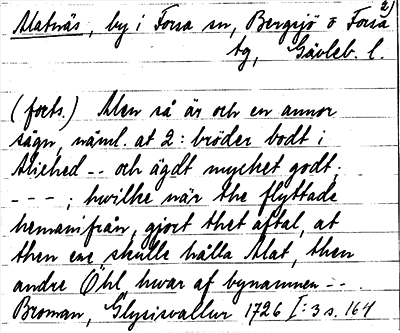 2)
Matnäs, by i Forsa sn, Bergsjö o Forsa
tg, Gävleb. l.
(forts.) Men så är och en annor
sägn, näml. at 2: bröder bodt i
Mehed -- och ägdt mycket godt.
- - - ; hwilke när the flyttade
hemanifrån, gjort thet aftal, at
then ene skulle hålla Mat, then
andre Öhl, hwar af bynamnen - -
Broman, Glysisvallur 1726 I: 3 s. 164